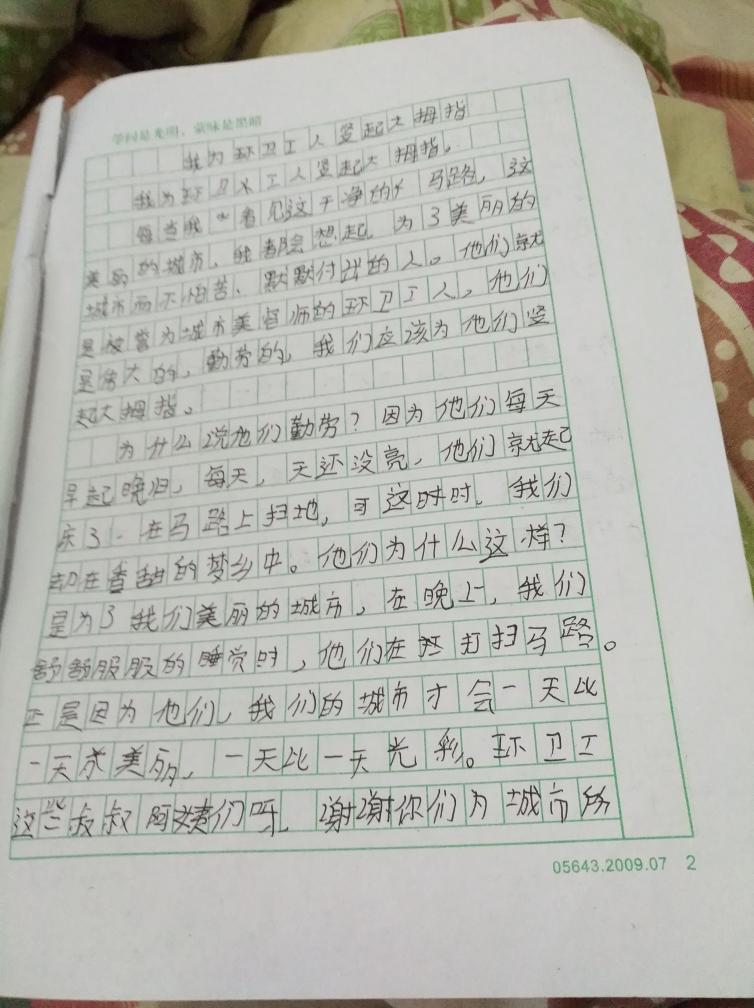 学问是光明，蒙昧是黑暗
我为环卫工人竖起大拇指
我为环卫工人竖起大拇指。
每当我看见这干净的马路，这
美丽的城市，我都会想起，为了美丽的
城市而不怕苦、默默付出的人。他们就
是被誉为城市美容师的环卫工人，他们
是伟大的，勤劳的，我们应该为他们竖
起大拇指。
为什么说他们勤劳？因为他们每天
早起晚归，每天，天还没亮，他们就起
床了．在马路上扫地，可这时时，我们
却在香甜的梦乡中。他们为什么这样？
是为了我们美丽的城市，在晚上，我们
舒舒服服的睡觉时，他们在打扫马路。
正是因为他们，我们的城市才会一天比
一天美丽，一天比一天光彩。环卫工
这些叔叔阿姨们呀，谢谢你们为城市所
05643.2009.07 2